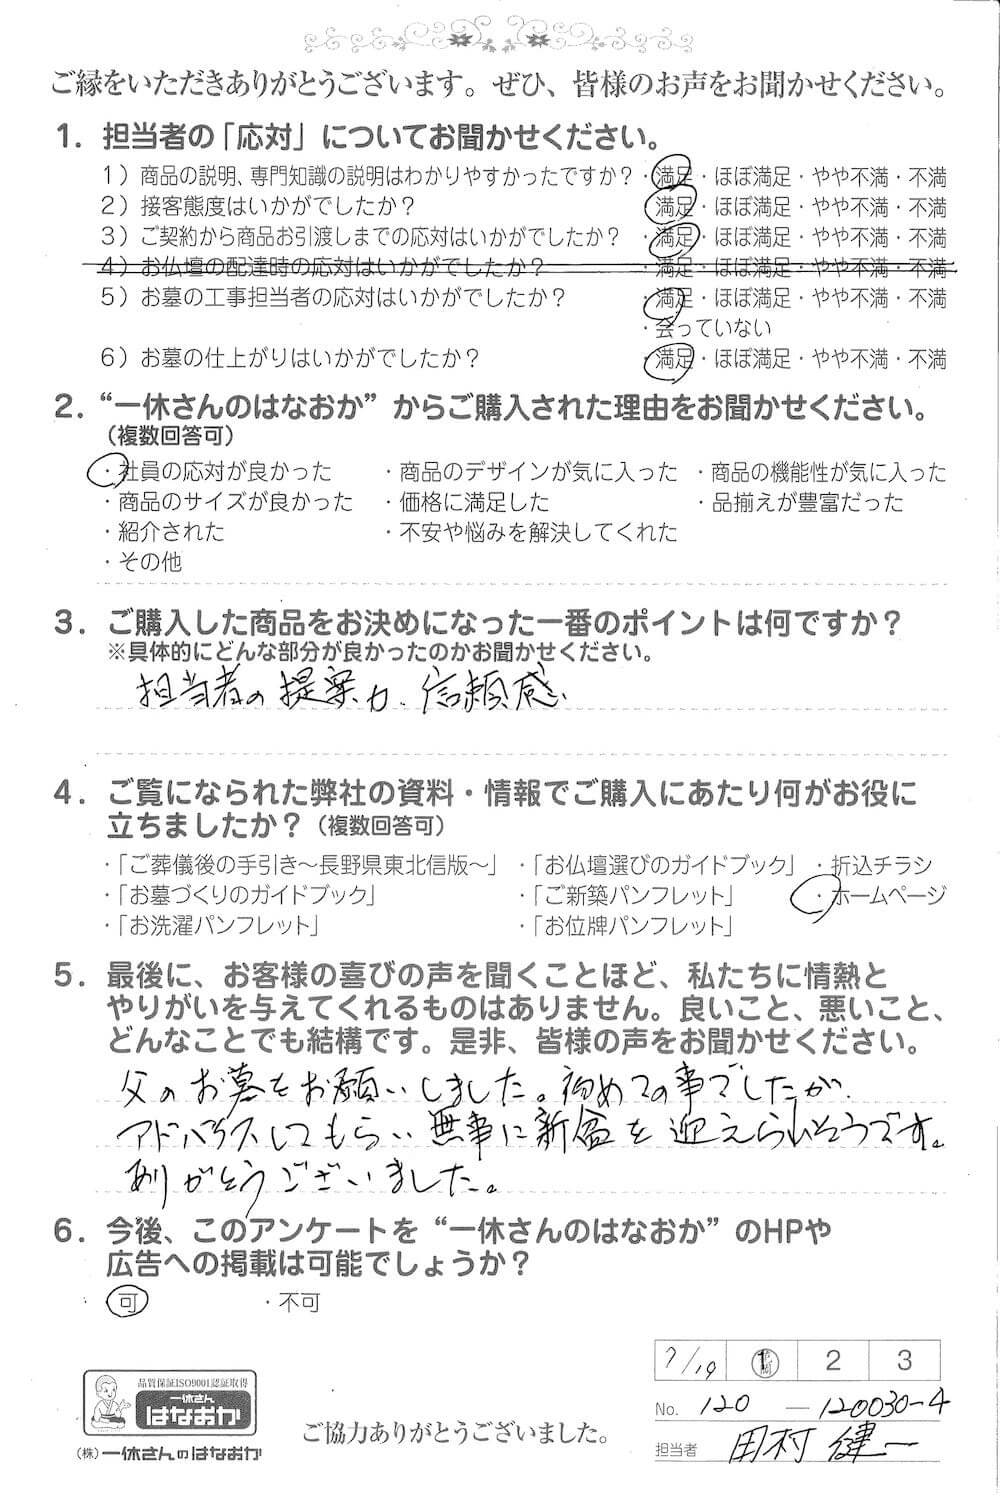 ご縁をいただきありがとうございます。ぜひ、皆様のお声をお聞かせください。
1. 担当者の「応対」についてお聞かせください。
1）商品の説明、専門知識の説明はわかりやすかったですか？・満足・ほぼ満足・やや不満・不満
2）接客態度はいかがでしたか？ 満足・ほぼ満足・やや不満・不満
3）ご契約から商品お引渡しまでの応対はいかがでしたか？ ・満足・ほぼ満足・やや不満・不満
4）お仏壇の配達時の応対はいかがでしたか？ ・満足・ほぼ満足・やや不満・不満
5）お墓の工事担当者の応対はいかがでしたか？ ・満足・ほぼ満足・やや不満・不満
・会っていない
6）お墓の仕上がりはいかがでしたか？ ・満足・ほぼ満足・やや不満・不満
2. “一休さんのはなおか”からご購入された理由をお聞かせください。
（複数回答可）
・社員の応対が良かった ・商品のデザインが気に入った ・商品の機能性が気に入った
・商品のサイズが良かった ・価格に満足した ・品揃えが豊富だった
・紹介された ・不安や悩みを解決してくれた
・その他
3. ご購入した商品をお決めになった一番のポイントは何ですか？
※具体的にどんな部分が良かったのかお聞かせください。
担当者の提案力、信頼感、
4. ご覧になられた弊社の資料・情報でご購入にあたり何がお役に
立ちましたか？（複数回答可）
・「ご葬儀後の手引き～長野県東北信版～」 ・「お仏壇選びのガイドブック」 ・折込チラシ
・「お墓づくりのガイドブック」 ・「ご新築パンフレット」 ・ホームページ
・「お洗濯パンフレット」 ・「お位牌パンフレット」
5. 最後に、お客様の喜びの声を聞くことほど、私たちに情熱と
やりがいを与えてくれるものはありません。良いこと、悪いこと、
どんなことでも結構です。是非、皆様の声をお聞かせください。
父のお墓をお願いしました。初めての事でしたが、
アドバイスしてもらい無事に新盆を迎えられそうです。
ありがとうございました。
6. 今後、このアンケートを“一休さんのはなおか”のHPや
広告への掲載は可能でしょうか？
・可 ・不可
7/19 1 2 3
No. 120 — 120030-4
担当者 田村 健一
品質保証ISO9001認証取得
一休さん
はなおか
（株）一休さんのはなおか
ご協力ありがとうございました。